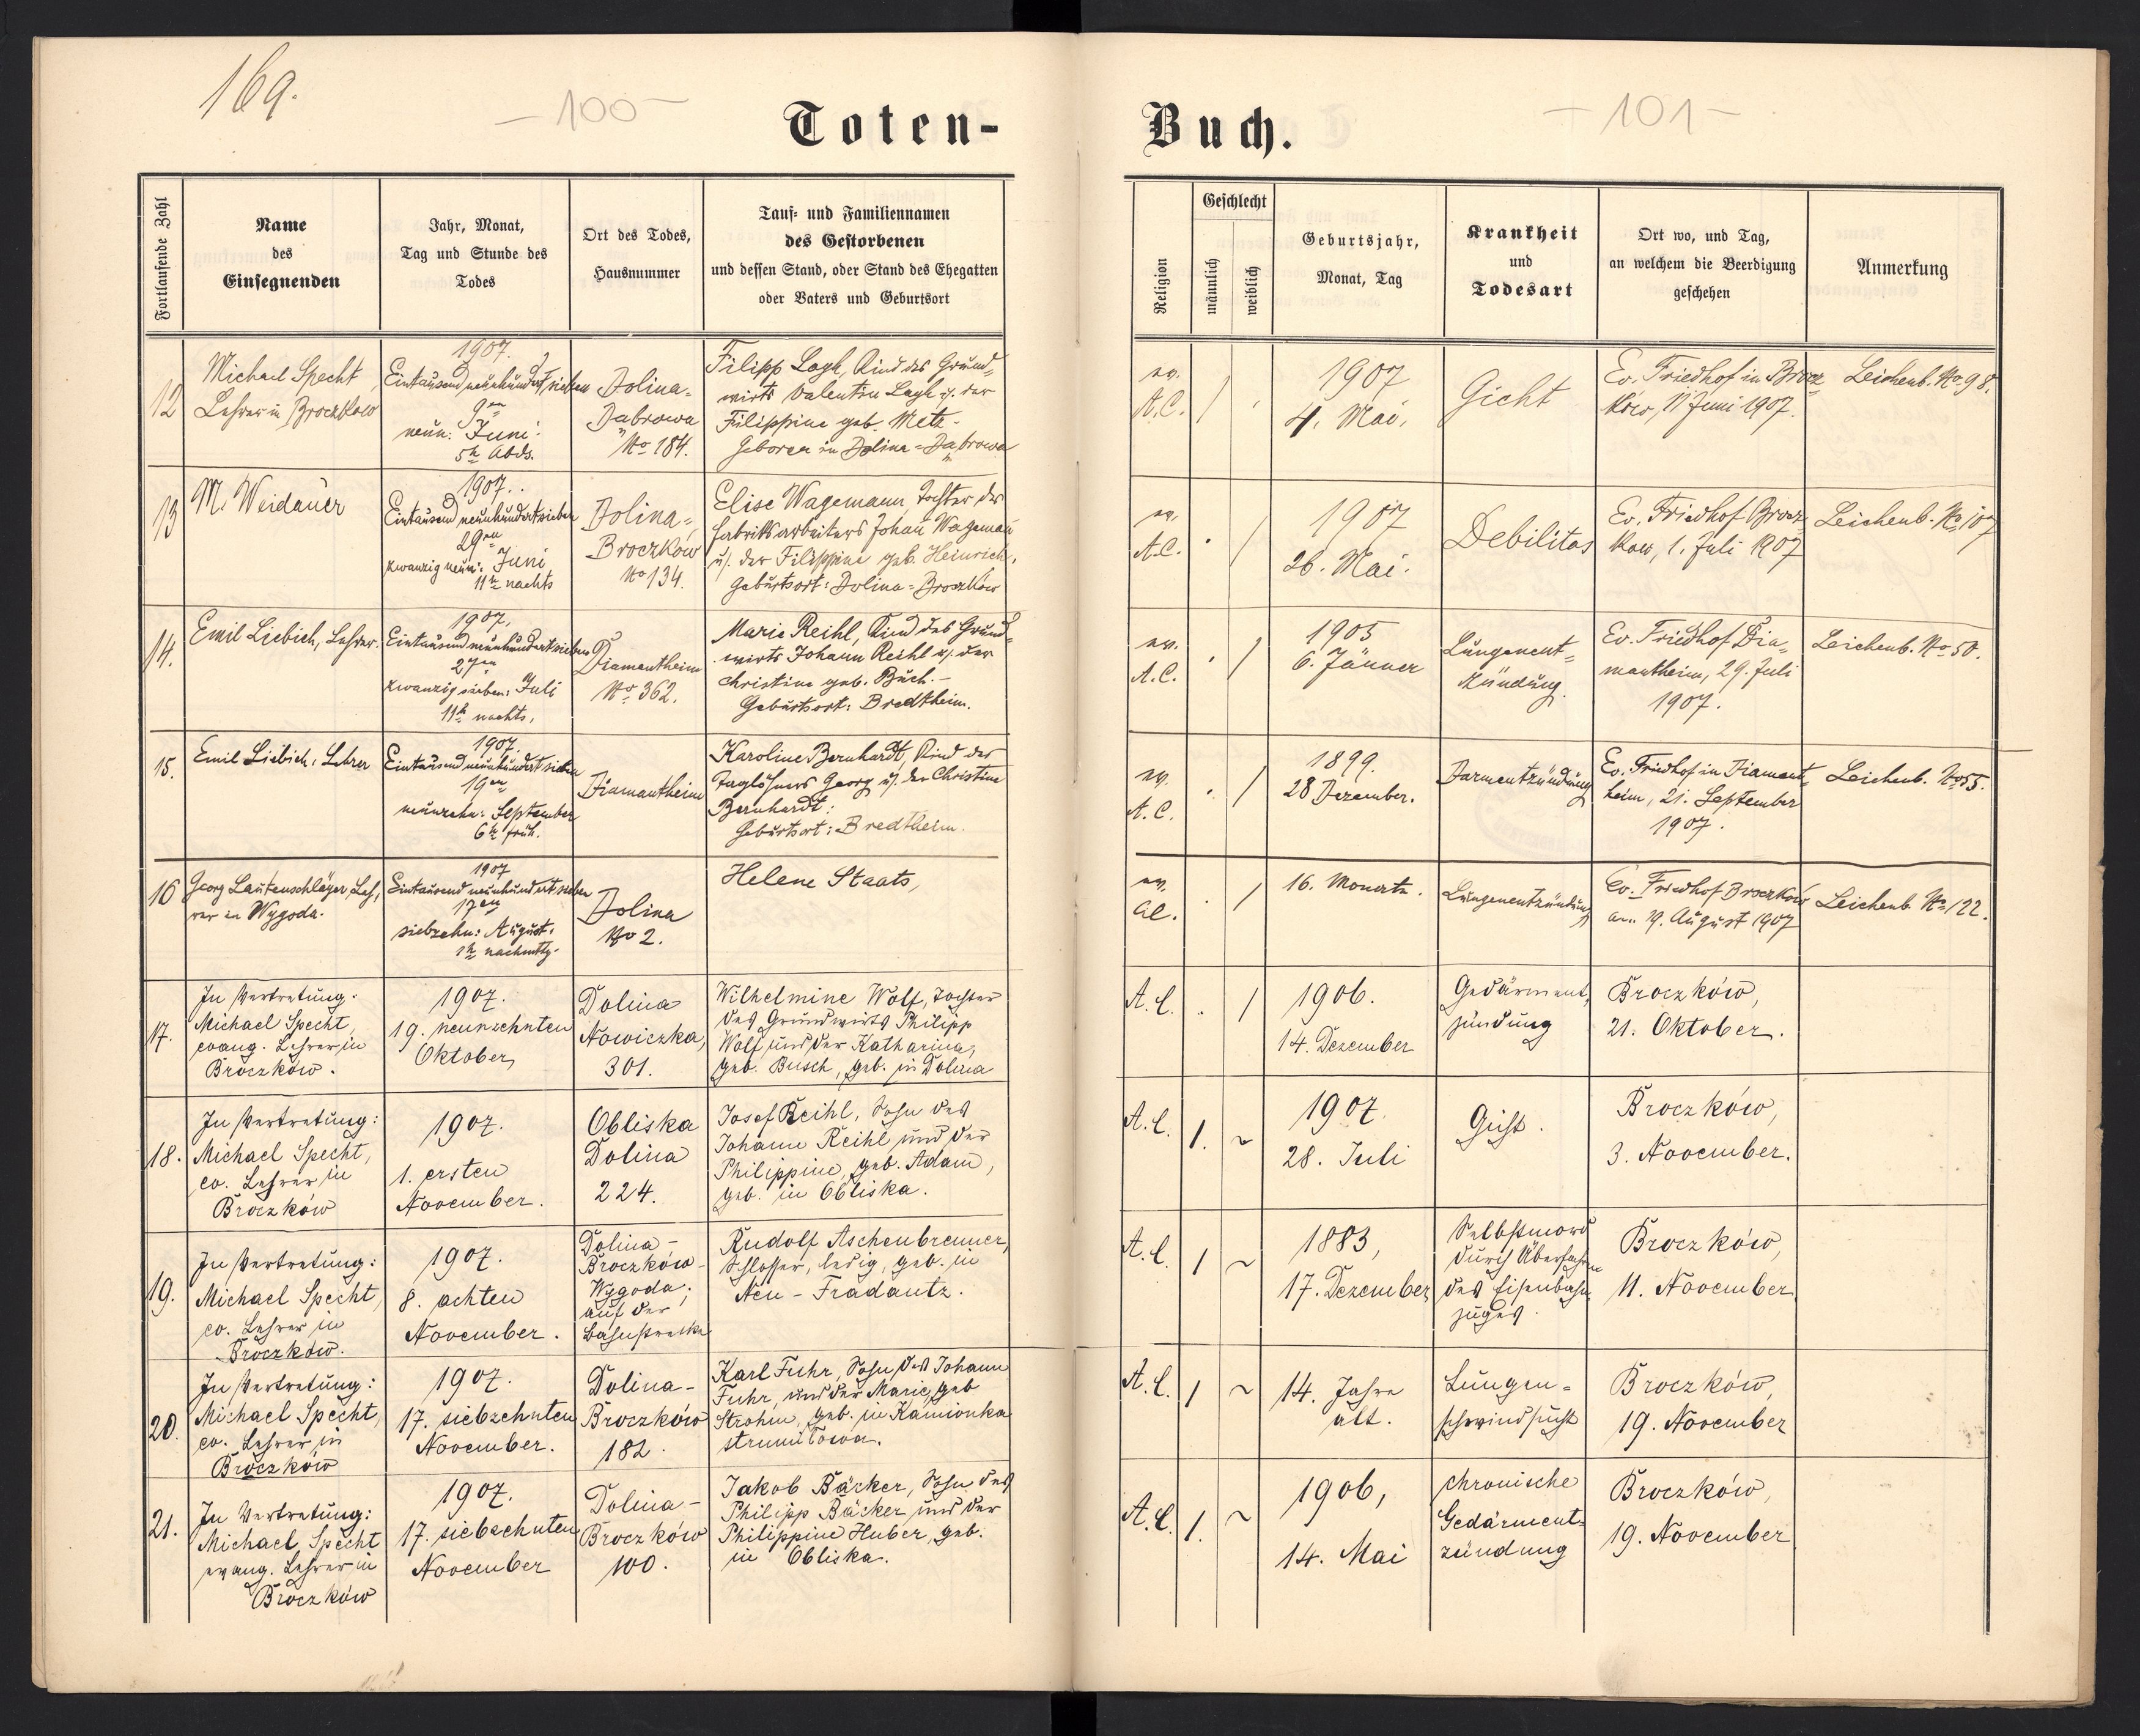 169.
- 100 -
Toten-
Fortlaufende Zahl
Name
des
Einsegnenden
Jahr, Monat,
Tag und Stunde des
Todes
Ort des Todes,
Hausnummer
Tauf- und Familiennamen
des Gestorbenen
und dessen Stand, oder Stand des Ehegatten
oder Vaters und Geburtsort
12
Michael Specht
Lehrer in Broczkow
1907.
Eintausendneunhundertsieben
9ten
neun: Juni.
5h Abds.
Dolina-
Dabrowa
No 184.
Filipp Lagh, Kind des Grund-
wirts Valentin Lagh u. der
Filippine geb. Metz.
Geboren in Dolina-Dabrowa
13
M. Weidauer
1907.
Eintausendneunhundertsieben
29ten
zwanzigneun: Juni
11h nachts
Dolina-
Broczków
No 134.
Elise Wagemann, Tochter des
Fabriksarbeiters Johan Wageman
u. der Filippine geb. Heinrich,
Geburtsort: Dolina-Broczków
14.
Emil Liebich, Lehrer.
1907.
Eintausendneunhundertsieben
27ten
zwanzigsieben: Juli
11h nachts,
Diamantheim
No 362.
Marie Reihl, Kind des Grund-
wirts Johann Reihl u. der
Christine geb. Buch. -
Geburtsort: Bredtheim.
15.
Emil Liebich, Lehrer
1907
Eintausendneunhundertsieben
19ten
neunzehn: September
6h früh.
Diamantheim
Karoline Bernhardt, Kind des
Taglöhners Georg u. der Christine
Bernhardt:
Geburtsort: Bredtheim.
16
Georg Lautenschläger Leh-
rer in Wygoda.
1907
Eintausendneunhundertsieben
17ten
siebzehn: August.
1h nachmttg.
Dolina
No 2.
Helene Staats,
17.
In Vertretung.
Michael Specht,
evang. Lehrer in
Broczków.
1907.
19. neunzehnten
Oktober,
Dolina
Nowiczka,
301.
Wilhelmine Wolf, Tochter
des Grundwirts Philipp
Wolf und der Katharina,
geb. Busch, geb. in Dolina
18.
In Vertretung:
Michael Specht,
ev. Lehrer in
Broczków
1907.
1. ersten
November.
Obliska
Dolina
224.
Josef Reihl, Sohn des
Johann Reihl und der
Philippine, geb. Adam,
geb. in Obliska.
19.
In Vertretung:
Michael Specht,
ev. Lehrer in
Broczków.
1907.
8. achten
November.
Dolina-
Broczków-
Wygoda;
auf der
Bahnstrecke
Rudolf Aschenbrenner,
Schlosser, ledig, geb. in
Neu-Fradautz.
20.
In Vertretung:
Michael Specht,
ev. Lehrer in
Broczków
1907.
17. siebzehnten
November.
Dolina-
Broczków
182.
Karl Fuhr, Sohn des Johann
Fuhr, und der Marie, geb
Strohm, geb. in Kamionka
strumiłowa.
21.
In Vertretung:
Michael Specht
evang. Lehrer in
Broczków
1907.
17. siebzehnten
November
Dolina-
Broczków
100.
Jakob Bäcker, Sohn des
Philipp Bäcker und der
Philippine Huber, geb.
in Obliska.
- 101 -
Buch.
Religion
Geschlecht
männlich
weiblich
Geburtsjahr,
Monat, Tag
Krankheit
und
Todesart
Ort wo, und Tag,
an welchem die Beerdigung
geschehen
Anmerkung
ev.
A.C.
/
1907
4. Mai.
Gicht
Ev. Friedhof in Brocz-
ków, 11 Juni 1907.
Leichenb. No 98.
ev.
A.C.
/
1907
26. Mai.
Debilitas
Ev. Friedhof Brocz-
kow, 1. Juli 1907
Leichenb. No 107
ev.
A.C.
/
1905
6. Jänner
Lungenent-
zündung.
Ev. Friedhof Dia-
mantheim, 29. Juli
1907.
Leichenb. No 50.
ev.
A.C.
/
1899.
28 Dezember.
Darmentzündung
Ev. Friedhof in Diamant-
heim, 21. September
1907.
Leichenb. No 55.
ev.
AC.
/
16. Monate.
Lungenentzündung
Ev. Friedhof Broczków
am 19. August 1907
Leichenb. No 122.
A.C.
/
1906.
14. Dezember
Gedärment-
zündung
Broczków,
21. Oktober.
A.C.
1.
~
1907.
28. Juli
Gicht.
Broczków,
3. November.
A.C.
1
~
1883,
17. Dezember
Selbstmord
durch Überfahren
des Eisenbahn-
zuges.
Broczków,
11. November
A.C.
1
~
14. Jahre
alt.
Lungen-
schwindsucht
Broczków,
19. November
A.C.
1.
~
1906,
14. Mai
chronische
Gedärment-
zündung
Broczków,
19. November